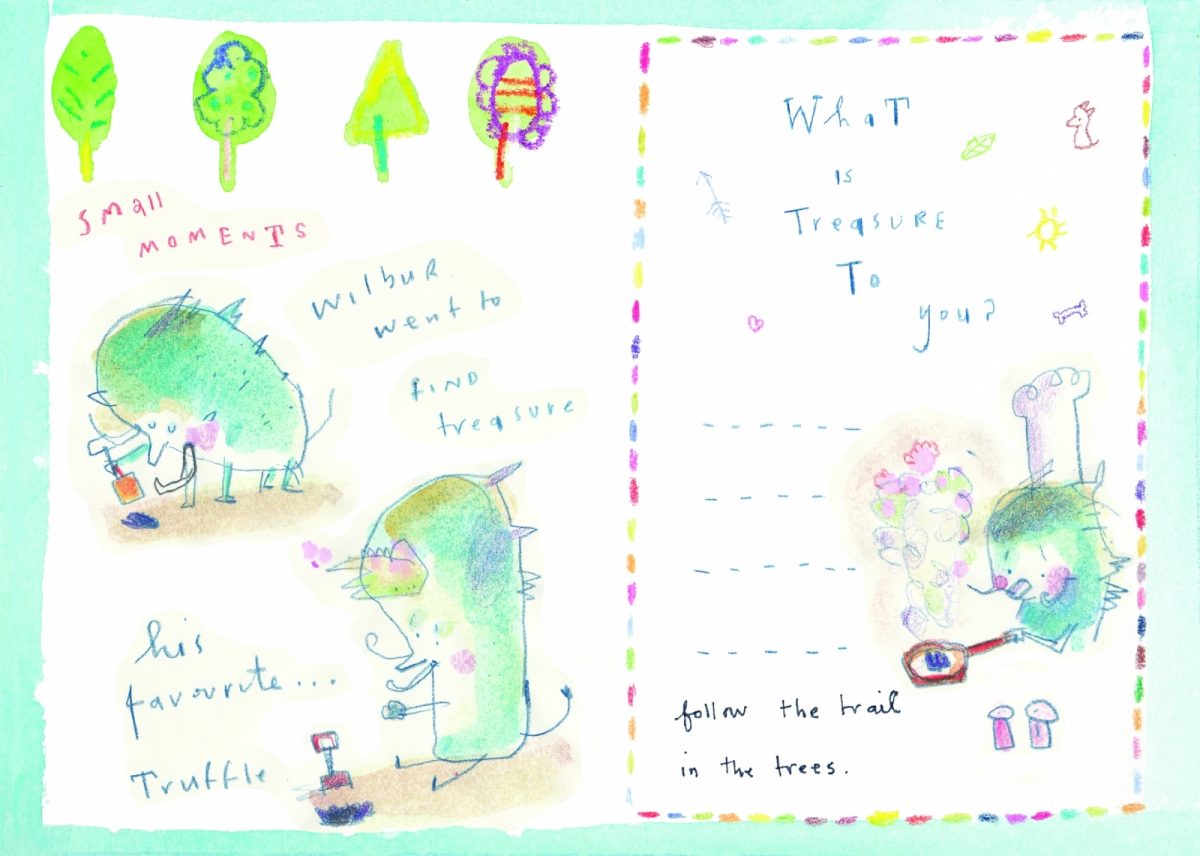 Small
MOMENTS
Wilbur
went to
FIND
treasure
his
favourite...
Truffle
WhaT
is
TreasURE
To
you?
follow the trail
in the trees.